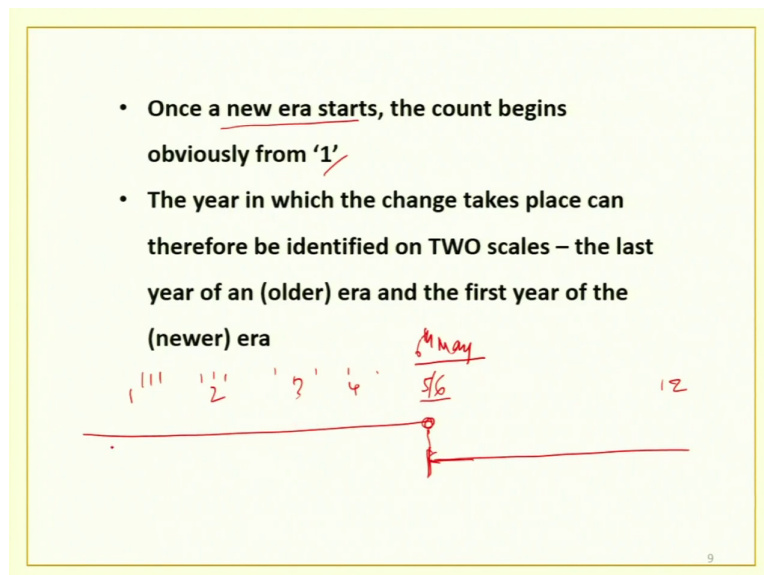 • Once a new era starts, the count begins
obviously from ‘1’
• The year in which the change takes place can
therefore be identified on TWO scales – the last
year of an (older) era and the first year of the
(newer) era
6th May
1 2 3 4 5/6 12
9